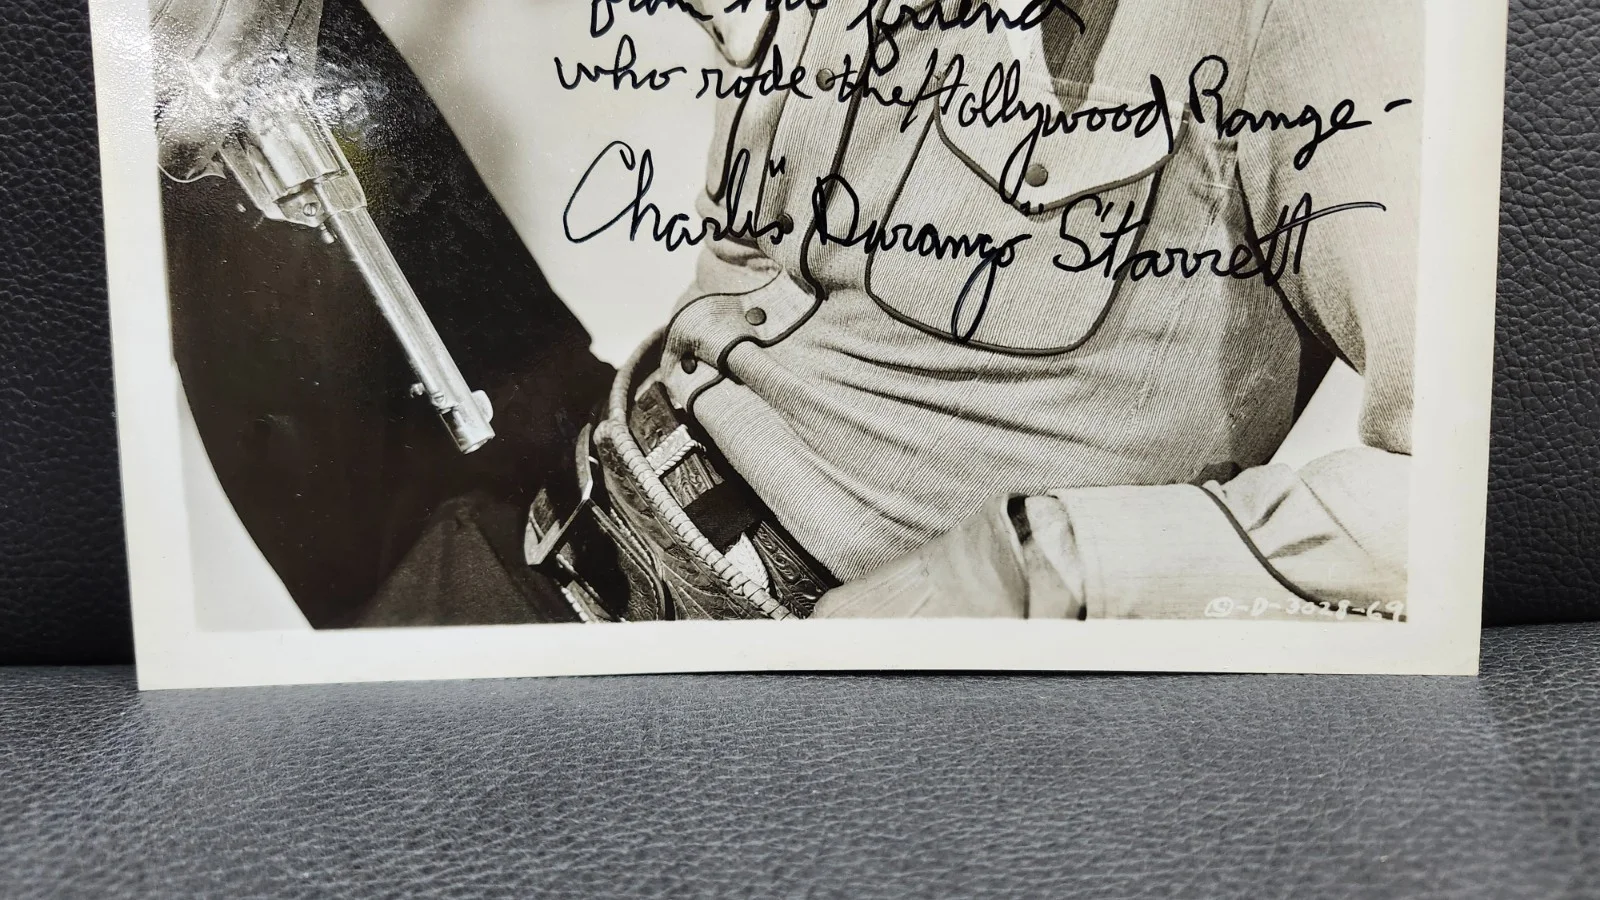 from the friend
who rode the Hollywood Range -
Charlis "Durango" Starrett
D-3028-69